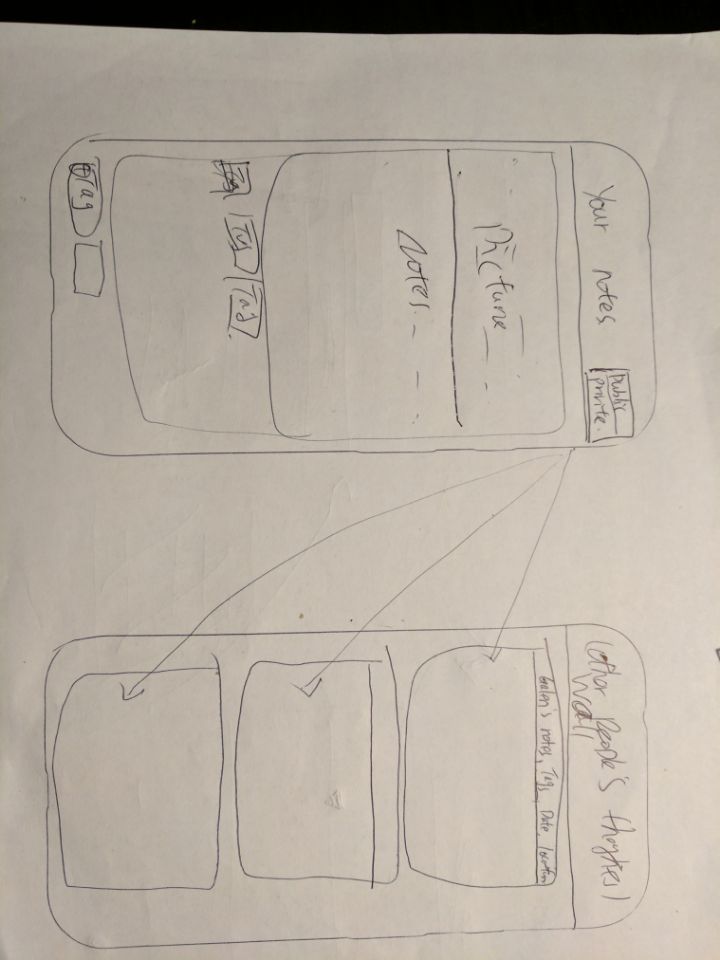 Your notes
public
private.
Picture
Notes.
Tag Tag Tag.
+Tag
(other people's thoughts)
Wall
Galen's notes, Tags, Date, location